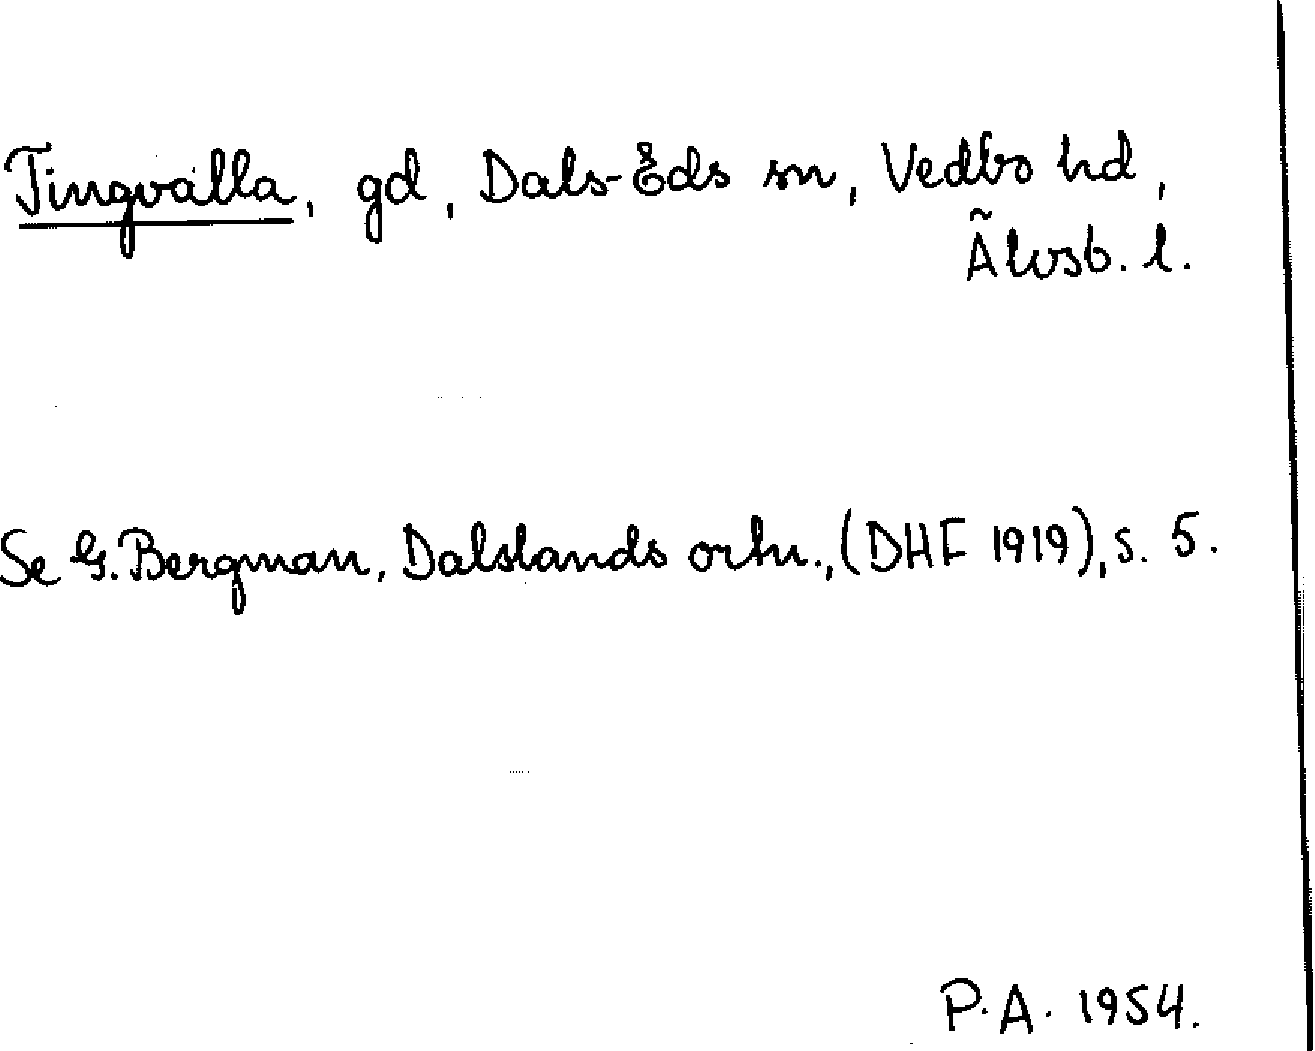 Tingvalla, gd, Dals-Eds sn, Vedbo hd,
Älvsb. l.
Se G. Bergman, Dalslands ortn., (DHF 1919), s. 5.
P.A. 1954.